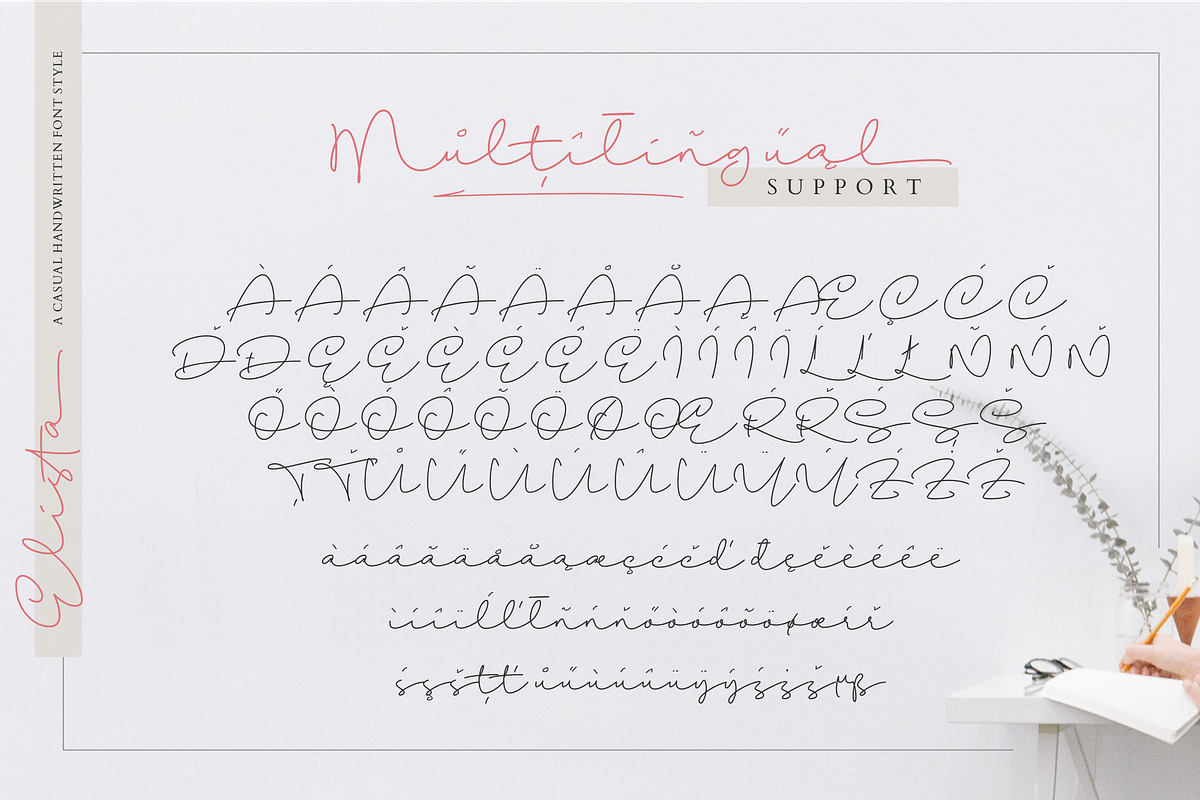 A CASUAL HANDWRITTEN FONT STYLE
Elista
Můlţîl̄íñgűąl
SUPPORT
ÀÁÂÃÄÅÅĄÆÇĆČ
ĎĐĘĚÈÉÊËÌÍÎÏĹĽŁÑŃŇ
ŐÒÓÔÕÖØŒŔŘŚŞŠ
ŢŤŮŰÙÚÛÜŸÝŹŻŽ
àáâãäååąæçćčďđęěèéêë
ìíîïĺľl̄ñńňőòóôõöøœŕř
śşšţťůűùúûüÿýźżžµß